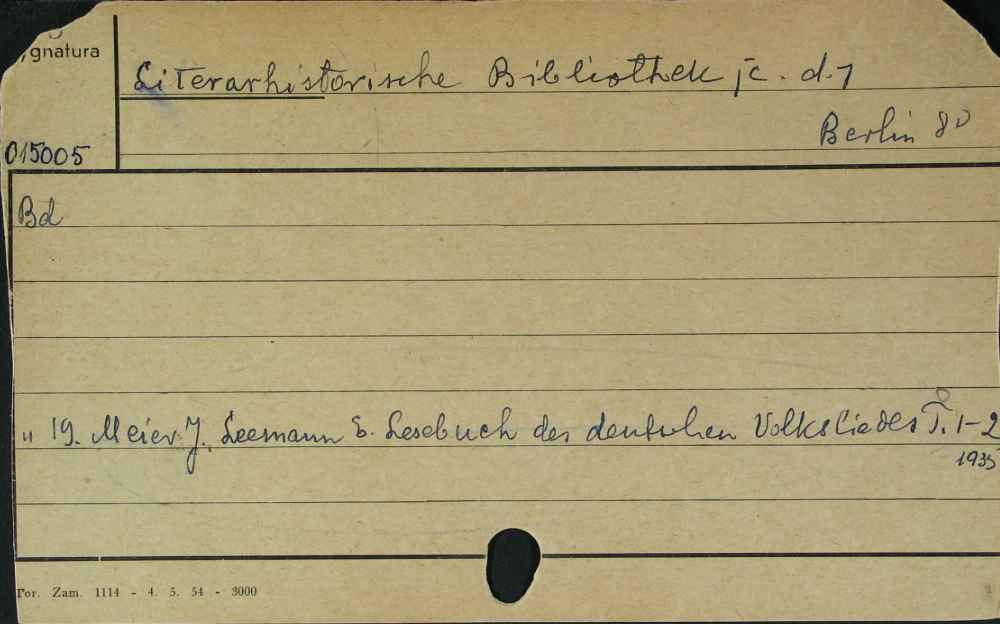 ygnatura
Literarhistorische Bibliothek jc. d. 1
Berlin 8⁰
015005
Bd
" 19. Meier J. Seemann E. Lesebuch des deutschen Volksliedes T. 1-2
1935
Tor. Zam. 1114 - 4. 5. 54 - 3000